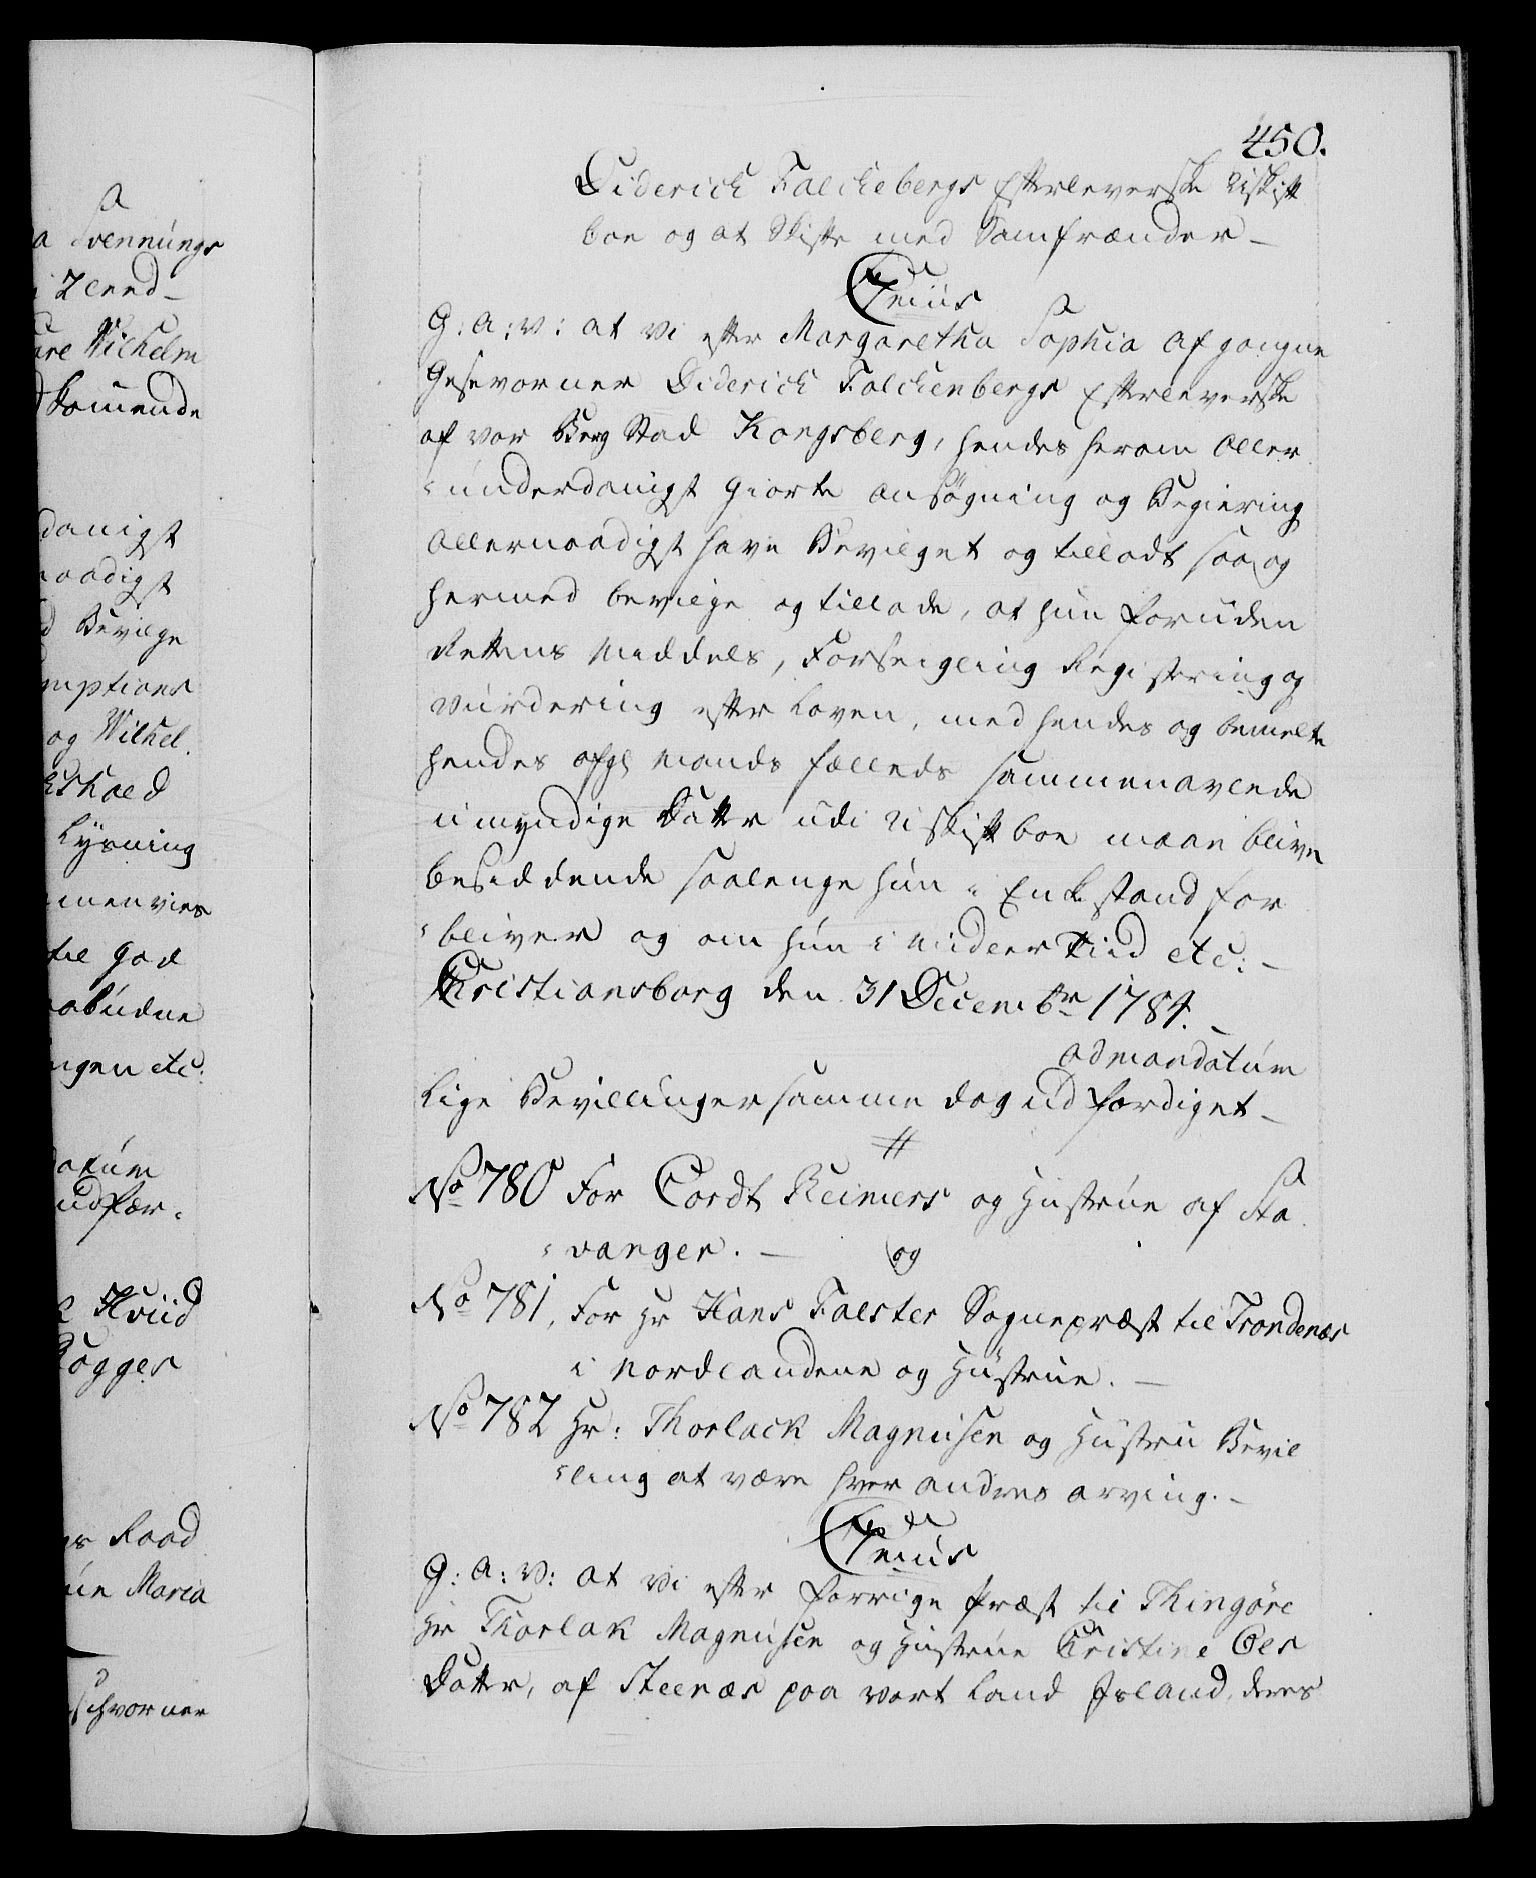 450.
Diderich Falckebergs Efterleverske Uskift
boe og at Skifte med Samfrænder –
C 7mus
G: A: V: at Vi efter Margaretha Sophia afgangne
Gesvorner Diderich Falckenbergs Efterleverske
af vor Berg Stad Kongsberg, hendes herom Aller
underdanigst giorte Ansøgning og Begiering
Allernaadigst have Bevilget og tilladt saa og
hermed bevilge og tillade, at hun foruden
Rettens Middels, Forseigling Registering og
Vurdering efter Loven, med hendes og bemelte
hendes afg: Mands fælleds sammenavlede
umyndige Datter udi Uskift boe maae blive
besiddende saalenge hun i Enke stand for
bliver og om hun i Midler Tiid etc: –
Christiansborg den 31 Decembr 1784. –
ad mandatum
Lige Bevillinger samme dag ud færdiget –
No 780 For Cordt Reimers og Hustrue af Sta
vanger. – og
No 781. For Hr Hans Falster Sognepræst til Trondenæs
i Nordlandene og Hustrue. –
No 782 Hr: Thorlack Magnusen og Hustru Bevil
ling at være hver andres arving. –
C 7mus
G: A: V: at Vi efter forrige Præst til Thingøre
Hr Thorlak Magnusen og Hustrue Christine Ols
Datter, af Steenæs paa vort Land Island, deres
a Svennungs
i Zeend –
are Wilhelm
kommende
danigst
naadigst
d Bevilge
mptions
og Wilhel.
Lysning
menvies
til God
abudne
ngen etc:
datum
udfær
Hviid
Rogges
gs Raad
ue Maria
schvorner